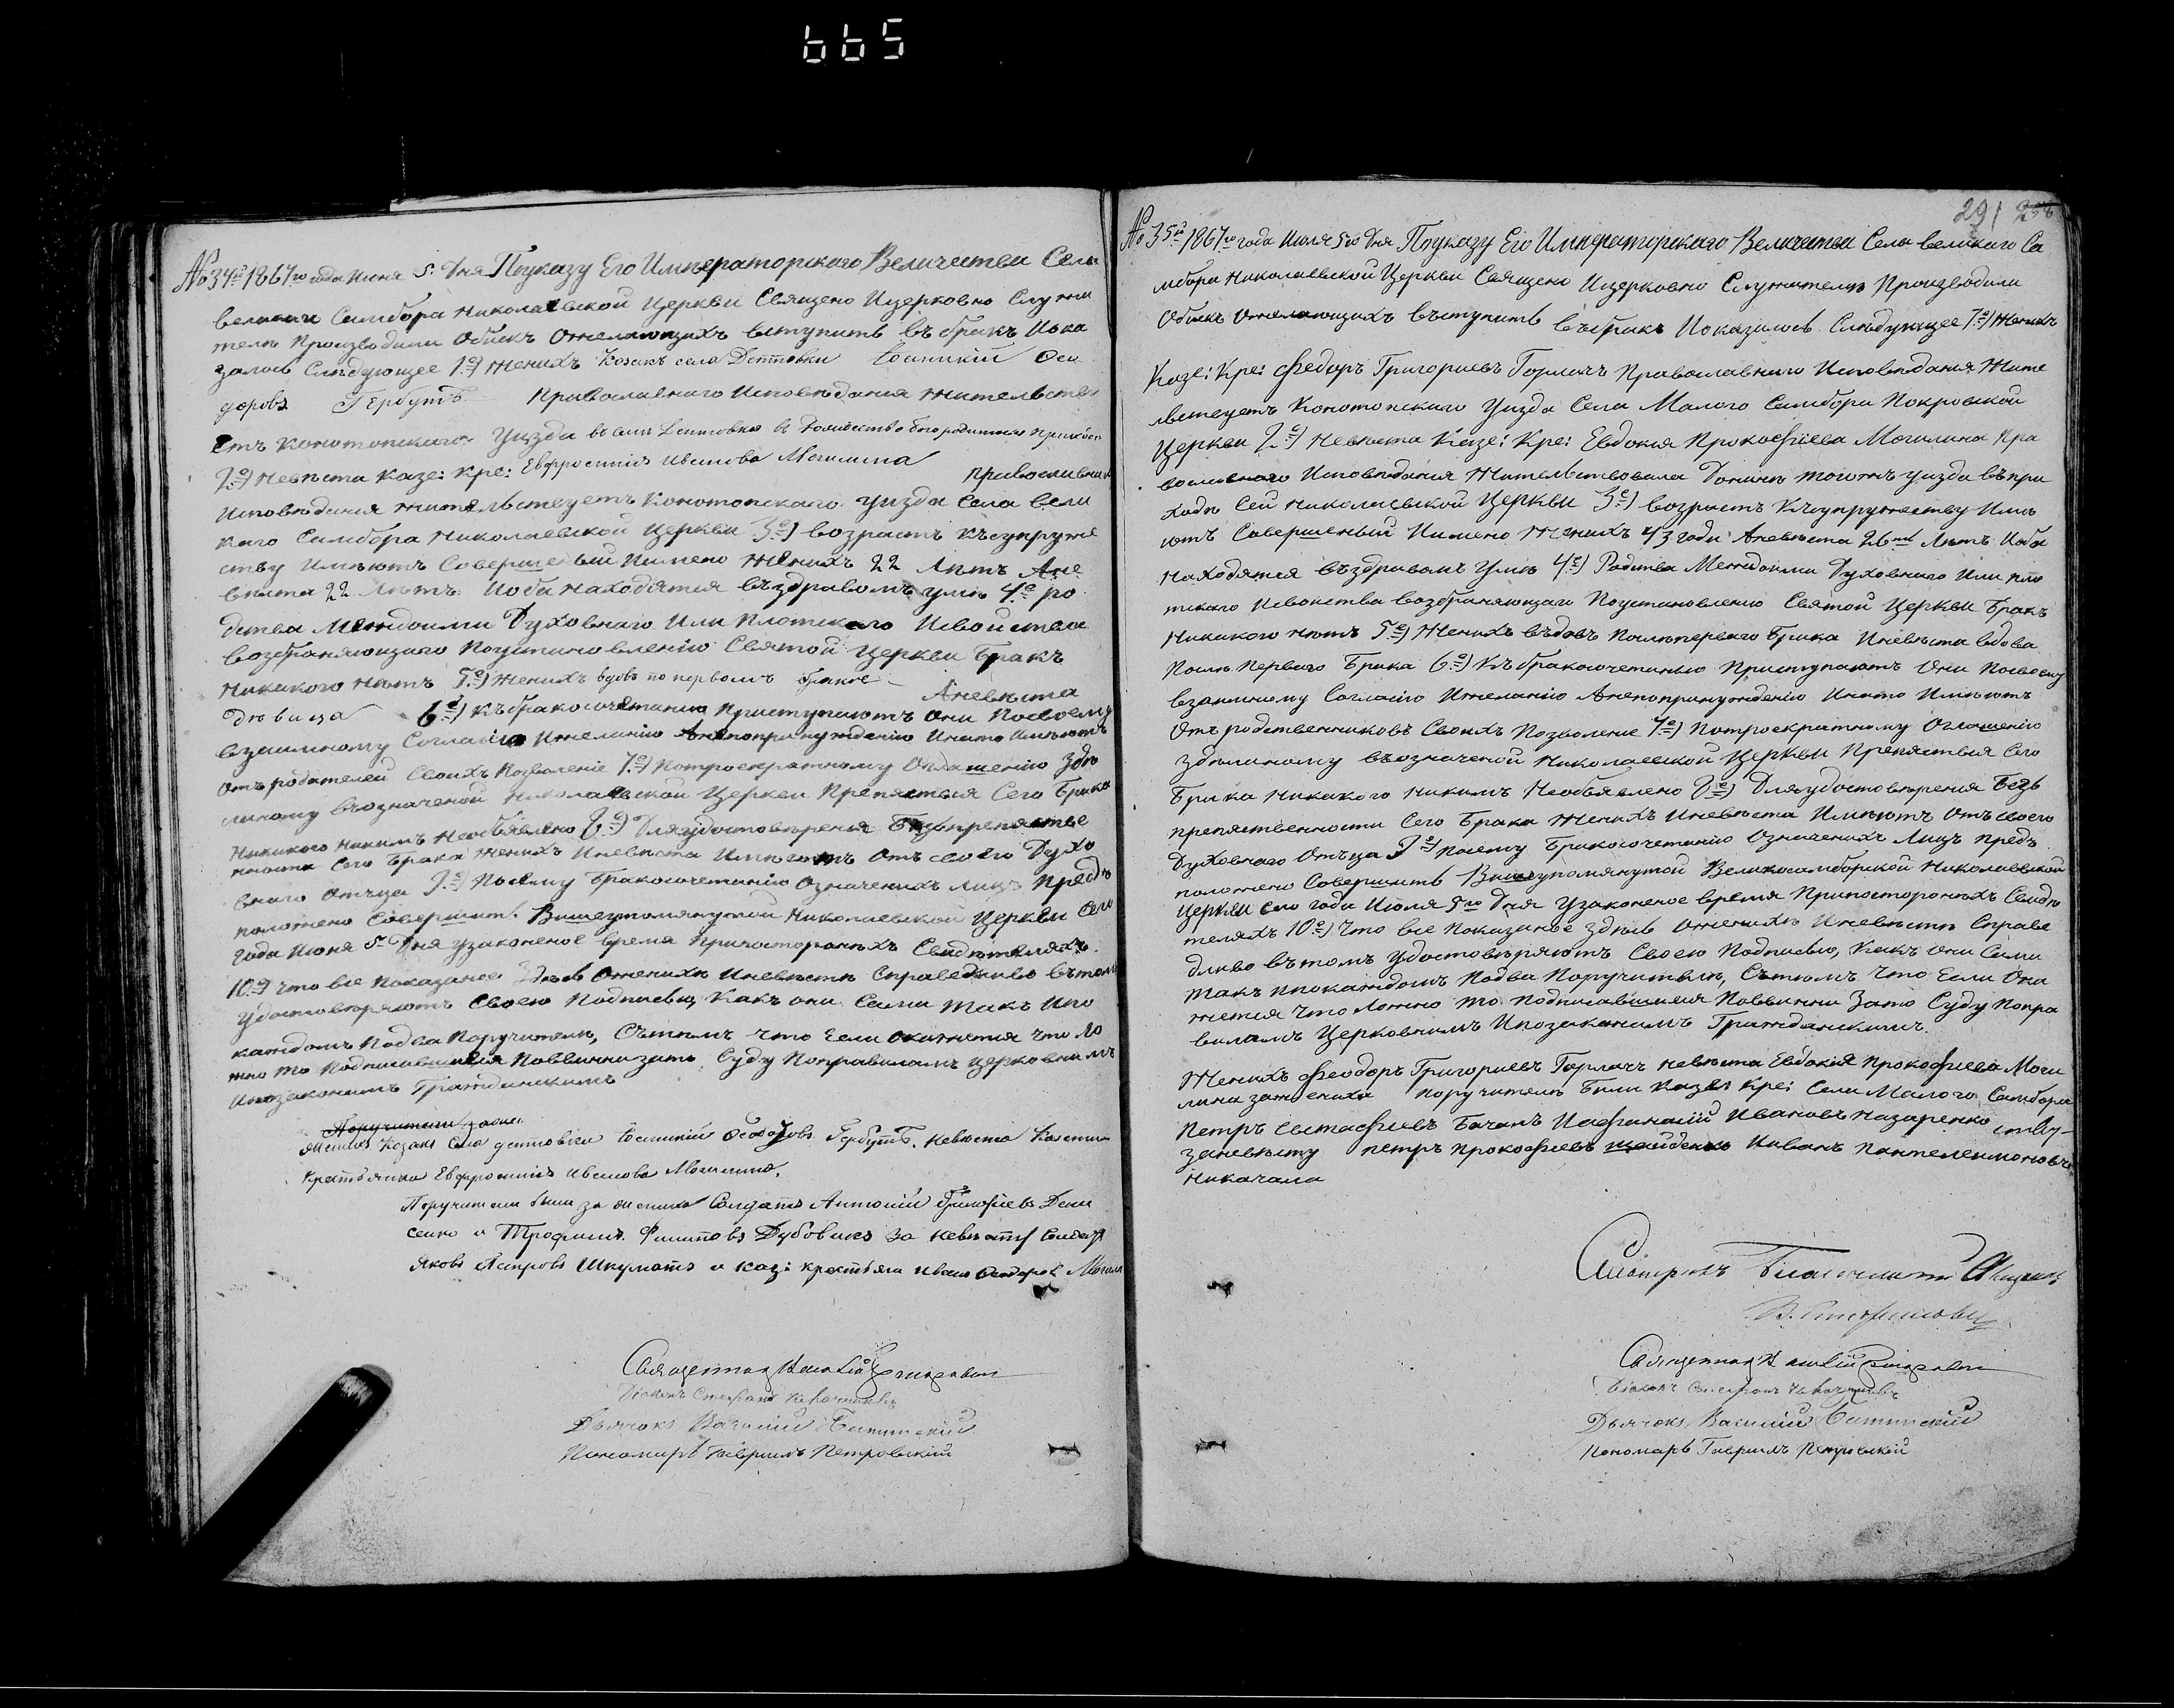 665
№ 34й 1867го года Июня 5. Дня Поуказу Его Императорского Величества Села
великаго Самбора Николаевской Церкви Священо Ицерковно Служи
тели Производили Обыскъ Ожелающихъ вступить въ бракъ Иока
залось Слѣдующее 1е) Женихъ Козакъ села Дептовки Ѳео
доровъ Гербутъ Православнаго Исповѣданія Жительству
етъ Конотопскаго Уизда въ селѣ Дептовки Рождество богородичной
2е) Невѣста Казе: Кре: Евфросинія Иванова Могилина Православнаго
Исповѣданія жительствуетъ Конотопскаго Уизда Села Вели
каго Самбора Николаевской Церкви 3е) возрастъ къ супруже
ству Имѣютъ Совершеный Имено Женихъ 22 Лѣтъ Ане
вѣста 22 Лѣтъ Иоба находятся въздравомъ умѣ 4е ро
дства Междоими Духовнаго Или Плотскаго Исвойства
возбраняющаго Поустановленію Святой Церкви Бракъ
Никакого нѣтъ 5е) Женихъ вдовъ по первомъ бракѣ Аневѣста
дѣвица 6е) къбракосочетанию приступаютъ они Посвоему
взаимному Согласію Ижеланію Анепопринуждению Инато Имѣютъ
отъ родителей Своихъ Позволеніе 7е) Потроекратному Оглашенію Здѣ
линому въозначеной Николаевской Церкви Препятствия Сего Брака
Никакого никимъ Необъявлено 8е) Дляудостовѣрения Безпрепятстве
нности Сего Брака Женихъ Иневѣста Имѣютъ отъ своего Духо
внаго Отъца 9е) Посему Бракосочетанію Означенихъ Лицъ Предъ
положено Совершить Вишеупомянутой Николаевской Церкви Сего
года Июня 5 Дня узаконеное время Припостороннхъ Свидѣтеляхъ.
10е) Что все Показаное Здѣсь Оженихѣ Иневѣстѣ Справедливо вътомъ
удостовѣряютъ Своею Подписью Какъ они Сами такъ Ипо
каждомъ Подва Поручителя, Сътѣмъ что Если окажется что Ло
жно то Подписавшиеся Повиннизато Суду Поправиламъ Церковнимъ
Ипозаконимъ Гражданскимъ
Поручители
Женихъ Козакъ Села дептовки Ѳеодоровъ Гербутъ. Невѣста Казенная
крестьянка Евфросинія Иванова Могилина.
Поручители были за жениха Солдатъ Антоній Дени
сенко и Трофимъ Филиповъ Дубовикъ за невѣсту Солдатъ
Яковъ Петровъ Шкуматъ и каз: крестьянинъ Иванъ Ѳедоровъ Могила
Священникъ
Діаконъ Стефанъ
Дьячокъ Василий
Пономарь Гавриилъ Петровский
291
№ 35й 1867го года Июля 5го Дня Поуказу Его Императорскаго Величества Села великаго Са
мбора Николаевской Церкви Священо Ицерковно Служители Производили
Обискъ Ожелающихъ въступить въбракъ Показалось Слѣдующее 1е) Женихъ
Казе: Кре: Федоръ Григориевъ Горлачъ Православнаго Исповѣдания Жите
льствуетъ Конотопскаго Уизда Села Малого Самбора Покровской
Церкви 2е) Невѣста Казе: Кре: Евдокия Прокофиева Могилина Пра
вославнаго Исповѣдания Жительствовала Донинѣ тогожъ уизда въпри
ходѣ Сей Николаевской Церкви 3е) возрастъ Късупружеству Имѣ
ютъ Совершеный Имено Женихъ 43 года Аневѣста 26ть Лѣтъ Иоба
Находятся въздравомъ умѣ 4е) Родства Междоими Духовнаго Или пло
тскаго Исвойства возбраняющаго Поустановлению Святой Церкви Бракъ
Никакого нѣтъ 5е) Женихъ въдовъ Послѣпервого Брака Иневѣста вдова
Послѣ Первого Брака 6е) Къбракосочетанью Приступаютъ Они Посвоему
взаимному Согласію Ижеланію Анепопринуждению Инато Имѣютъ
Отъ родственниковъ Своихъ Позволение 7е) Потроекратному Оглашению
Здѣлиному въозначеной Николаевской Церкви Препятствия Сего
Брака Никакого никимъ Необъявлено 8е) Дляудостовѣрения Безъ
препятственности Сего Брака Женихъ Иневѣста Имѣютъ Отъсвоего
Духовнаго Отъца 9е) Посему Бракосочетанію Означенихъ Лицъ Предъ
положено Совершить Вишеупомянутой Великосамборской Николаевской
Церкви сего года Июля 5го Дня Узаконеное время Припостороннхъ Свидѣ
теляхъ 10е) Что все Показаное здѣсь Оженихѣ Иневѣстѣ Справе
дливо вътомъ удостовѣряютъ Своею Подписью, Какъ они Сами
такъ ипокаждомъ Подва Поручителя, Сътѣмъ Что Если Ока
жется что Ложно то Подписавшиеся Повинни Зато Суду Попра
виламъ Церковнимъ Ипозаконимъ Гражданскимъ.
Женихъ Феодоръ Григориевъ Горлачъ невѣста Евдокия Прокофиева Моги
лина зажениха поручители Были казен кре: Села Малого Самбора
Петръ Бачанъ Иафанасий Ивановъ Назаренко
заневѣсту петръ прокофиевъ Иванъ Пантелеимоновъ
Никачала
Священникъ
Діаконъ Стефанъ
Дьячокъ Василий
Пономарь Гавриилъ Петровский